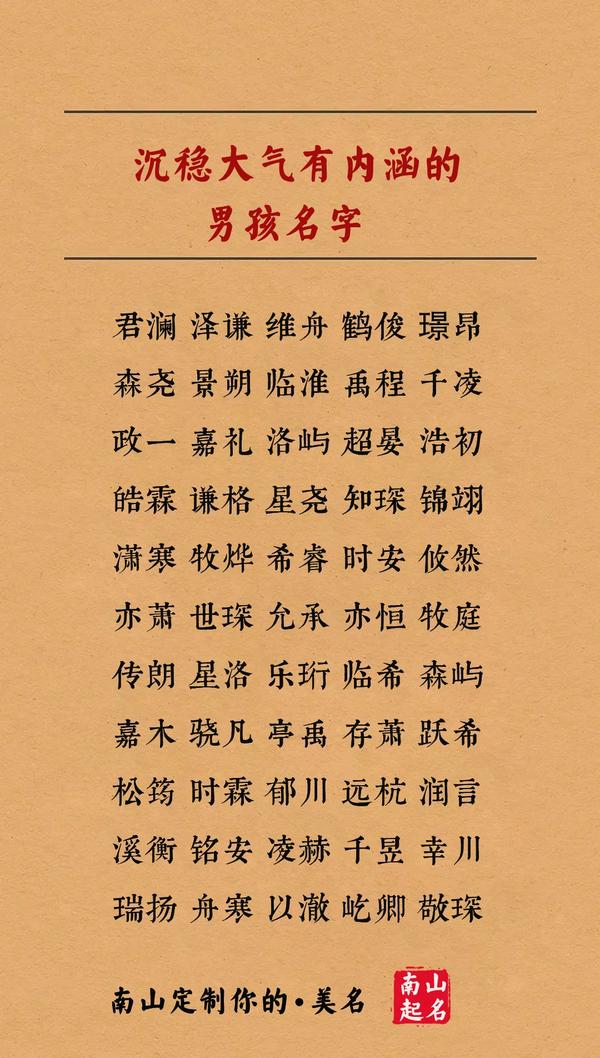 沉稳大气有内涵的
男孩名字
君澜 泽谦 维舟 鹤俊 璟昂
森尧 景朔 临淮 禹程 千凌
政一 嘉礼 洛屿 超晏 浩初
皓霖 谦格 星尧 知琛 锦翊
潇寒 牧烨 希睿 时安 攸然
亦萧 世琛 允承 亦恒 牧庭
传朗 星洛 乐珩 临希 森屿
嘉木 骁凡 亭禹 存萧 跃希
松筠 时霖 郁川 远杭 润言
溪衡 铭安 凌赫 千昱 幸川
瑞扬 舟寒 以澈 屹卿 敬琛
南山定制你的·美名
南山
起名